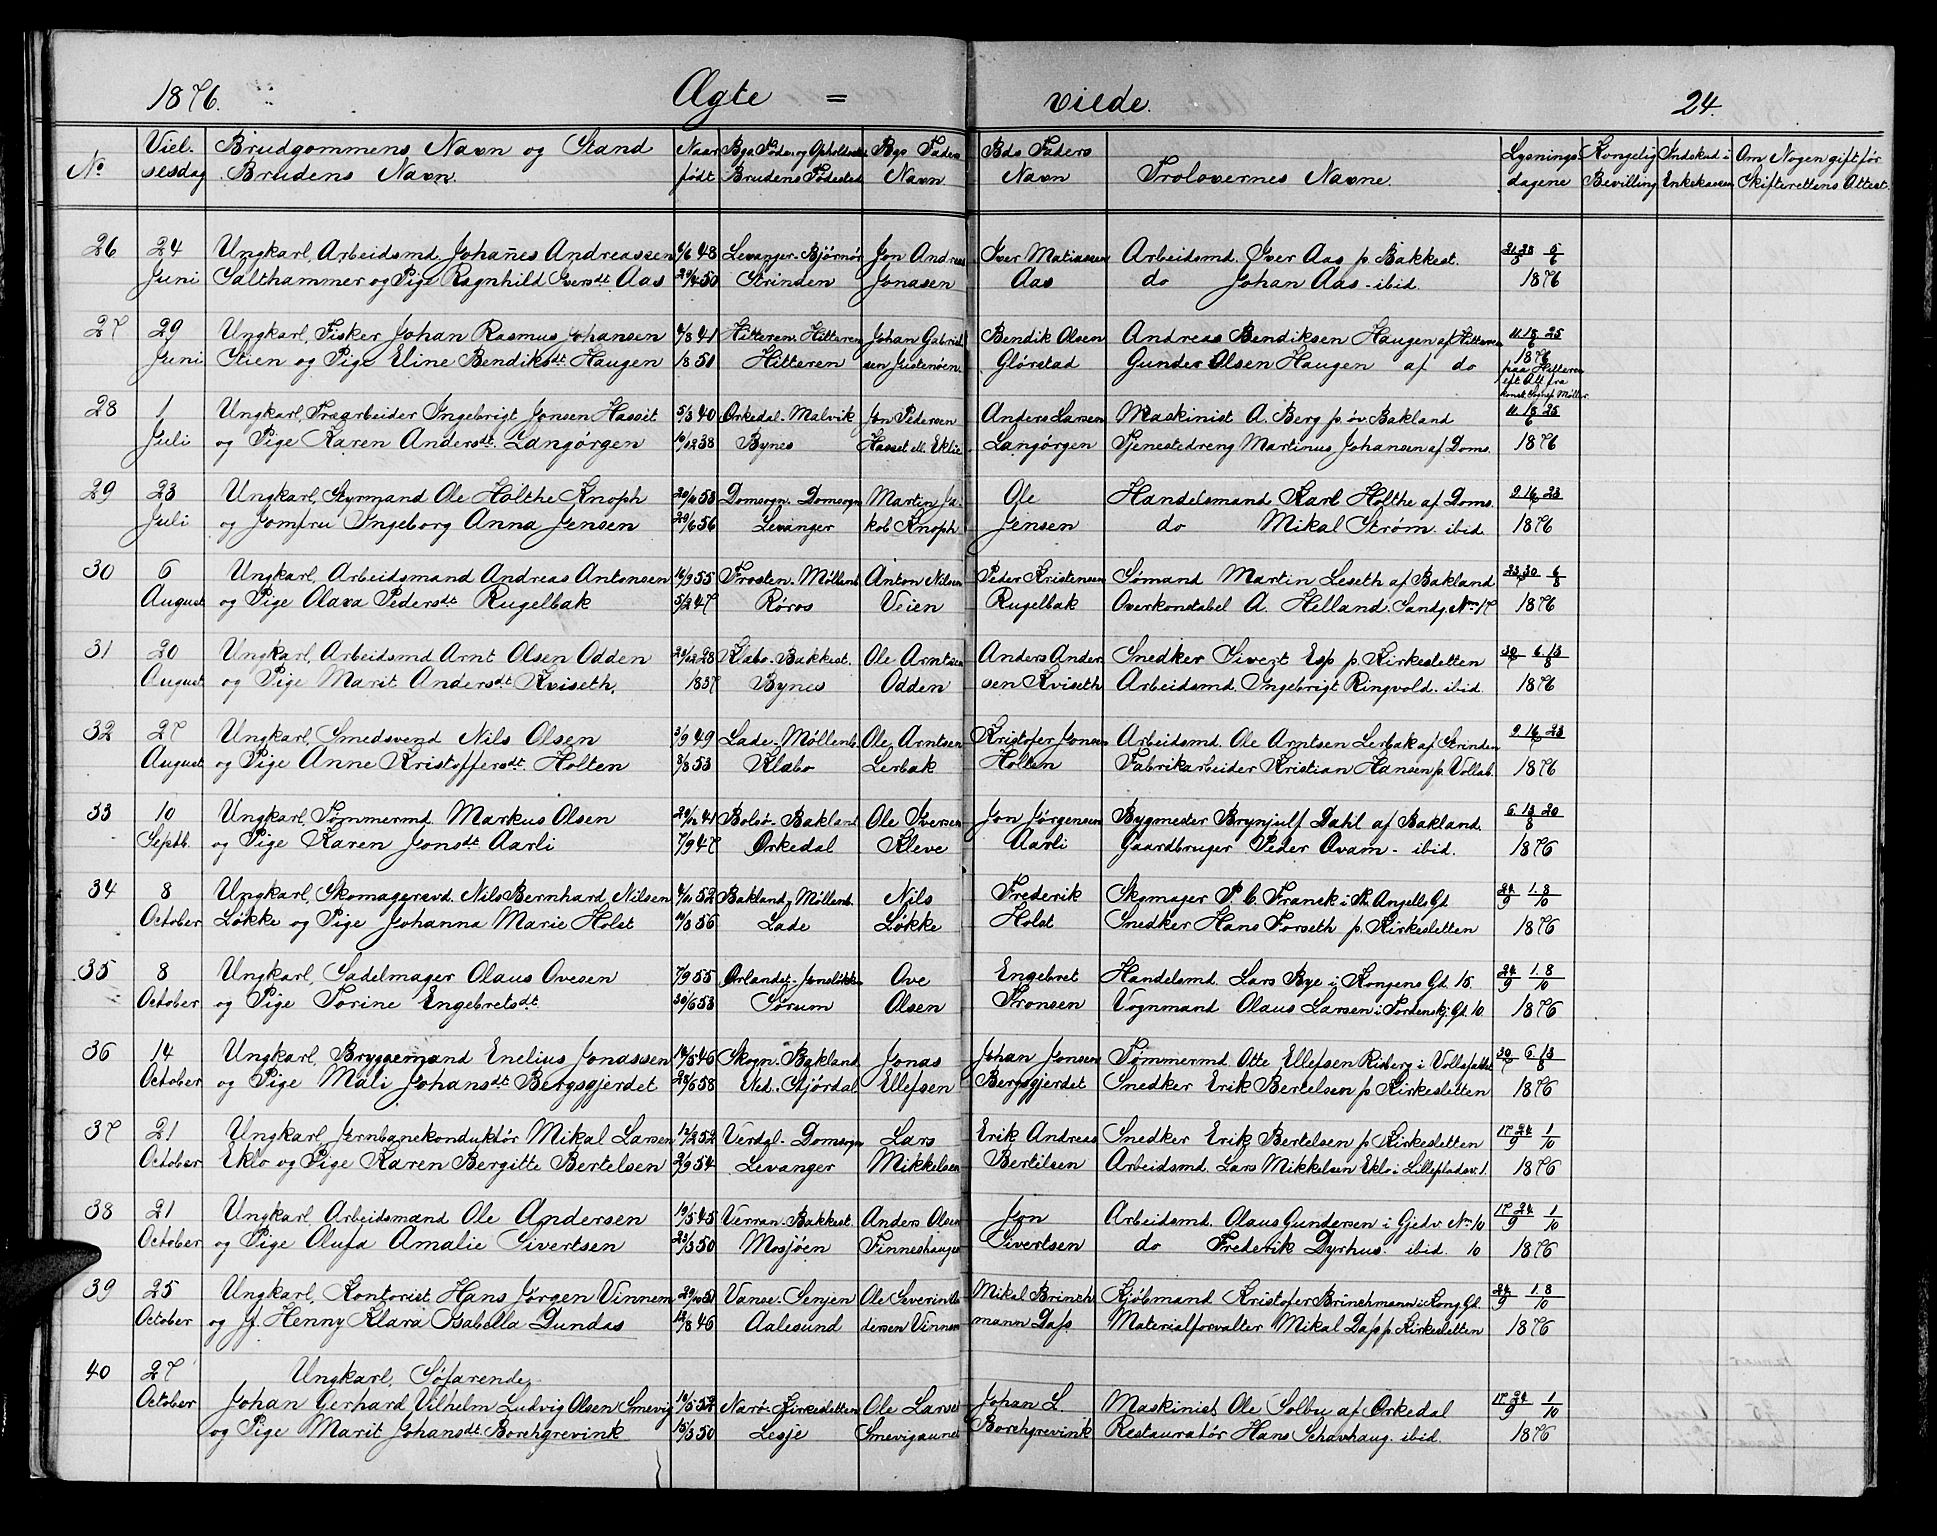 1876. Ægte = viede. 24.
No Vielsesdag Brudgommens Navn og Stand Brudens Navn. Naar født Bgs. Føde- og Opholdssted Brudens Fødested Bgs Faders Navn Bds Faders Navn Trolovernes Navne. Lysningsdagene Kongelig Bevilling Indskud i Enkekassen Om Nogen gift før Skifterettens Attest.
26 24 Ungkarl, Arbeidsmd. Johañes Andreassen 6/6 48 Levanger. Bjørnør Jon Andreas Iver Matiassen Arbeidsmd. Iver Aas p. Bakkest. 21 28/5 5/6
Juni Salthammer og Pige Ragnhild Iversdt Aas 50 Strinden Jonasen Aas do Johan Aas - ibid. 1876
27 29 Ungkarl, Fisker Johan Rasmus Johansen 4/8 41 Hitteren. Hitteren Johan Gabriel Bendik Olsen Andreas Bendiksen Haugen af Hitteren 11 18 25/6
Juni Stien og Pige Eline Bendiksdt Haugen 1851 Hitteren sen Glørstad Gunder Olsen Haugen af do 1876
paa Hitteren
eft Att fra
konst Sognep Møller
28 1 Ungkarl, Træarbeider Ingebrigt Jonsen Hasset 5/3 40 Orkedal. Malvik Jon Pedersen Anders Larsen Maskinist A. Berg p. øv. Bakland 11 18 25/6
Juli og Pige Karen Andersdt. Langørgen 10/12 38 Bynes Hasset ell. Eklie Langørgen Tjenestedreng Martinus Johansen af Doms. 1876
29 23 Ungkarl, Styrmand Ole Holthe Knoph 53 Domsogn. Domsogn Martin Ja- Ole Handelsmand Karl Holthe af Doms. 9 16 23
Juli og Jomfru Ingeborg Anna Jensen 29/6 56 Levanger kob Knoph Jensen do Mikal Strøm. ibid. 1876
30 6 Ungkarl, Arbeidsmand Andreas Antonsen 16/9 55 Frosten. Møllenb. Anton Nilsen Peder Kristensen Sømand Martin Leseth af Bakland 23 30/7 6/8
August og Pige Olava Pedersdt Rugelbak 5/2 47 Røros Veien Rugelbak Overkonstabel A. Helland. Sandg. No 17 1876
31 20 Ungkarl, Arbeidsmd Arnt Olsen Odden 28/12 28 Klæbo. Bakkest. Ole Arntsen Anders Ander Snedker Sivert Esp p. Kirkesletten 30/7 6 13/8
August og Pige Marit Andersdt. Kviseth, 1837 Bynes Odden sen Kviseth Arbeidsmd. Ingebrigt Ringvold. ibid. 1876
32 27 Ungkarl, Smedsvend Nils Olsen 3/9 49 Lade. Møllenb. Ole Arntsen Kristofer Jonsen Arbeidsmd. Ole Arntsen Lerbak af Strinden 9 16 23
August og Pige Anne Kristoffersdt. Holten 3/8 53 Klæbo Lerbak Holten Fabrikarbeider Kristian Hansen p. Vollab. 1876
33 10 Ungkarl, Tømmermd Markus Olsen 41 Bolsø. Bakland Ole Iversen Jon Jørgensen Bygmester Brynjulf Dahl af Bakland. 6 13 20/8
Septb. og Pige Karen Jonsdt Aarli 7/9 47 Ørkedal Kleve Aarli Gaardbruger Peder Qvam - ibid. 1876
34 8 Ungkarl, Skomagersvd. Nils Bernhard Nilsen 4/10 52 Bakland, Møllenb. Nils Frederik Skomager P. C. Franck i Th. Angells Gd. 24/9 1. 8/10
October Løkke og Pige Johanna Marie Holst 56 Lade Løkke Holst Snedker Hans Forseth p. Kirkesletten 1876
35 8 Ungkarl, Sadelmager Olaus Ovesen 7/9 55 Ørlandet. Jonsløkken Ove Engebret Handelsmd. Lars Bye i Kongens Gd. 15. 24/9 1. 8/10
October og Pige Torine Engebretsdt. 30/6 53 Sørum Olsen Tronsen Vognmand Olaus Larsen i Tordenskj. Gd. 10 1876
36 14 Ungkarl, Bryggemand Enelius Jonassen 14/5 46 Skogn. Bakland. Jonas Johan Jonsen Tømmermd. Otte Ellefsen Risberg i Vollafaldet 30/7 6 13/8
October og Pige Mali Johansdt Bergsgjerdet 28/6 58 Ned. Stjørdal Ellefsen Bergsgjerdet Snedker Erik Bertelsen p. Kirkesletten 1876
37 21 Ungkarl, Jernbanekonduktør Mikal Larsen 12/2 52 Verdal. Domsogn Lars Erik Andreas Snedker Erik Bertelsen p. Kirkesletten 17 24/9 1/10
October Eklo og Pige Karen Bergitte Bertelsen 54 Levanger Mikkelsen Bertilsen Arbeidsmd. Lars Mikkelsen Eklo i Lillepladsv. 1. 1876
38 21 Ungkarl, Arbeidsmand Ole Andersen 19/5 45 Verran. Bakkest. Anders Olsen Jon Arbeidsmd. Olaus Gundersen i Gjedv. No 10 17 24/9 1/10
October og Pige Olufa Amalie Sivertsen 23/3 50 Mosjøen Finneshaugen Sivertsen do Frederik Dyrhus. ibid. 10 1876
39 25 Ungkarl, Kontorist Hans Jørgen Vinnem 29/10 51 Vanse. Senjen Ole Severin An Mikal Brinch Kjøbmand Kristofer Brinchmann i Kong. Gd. 24/9 1. 8/10
October og J. Henny Klara Isabella Dundas 12/8 46 Aalesund dersen Vinnem mann Dass Materialforvalter Mikal Dass p. Kirkesletten 1876
40 27 Ungkarl, Søfarende,
October Johan Gerhard Vilhelm Ludvig Olsen Smevig 10/5 52 Narø. Kirkesletten Ole Larsen Johan L. Maskinist Ole Solbu af Orkedal 17 24/9 1/10
og Pige Marit Johansdt. Borchgrevink 15/3 50 Lesje Smevigaunet Borchgrevink Restauratør Hans Schavhaug. ibid. 1876